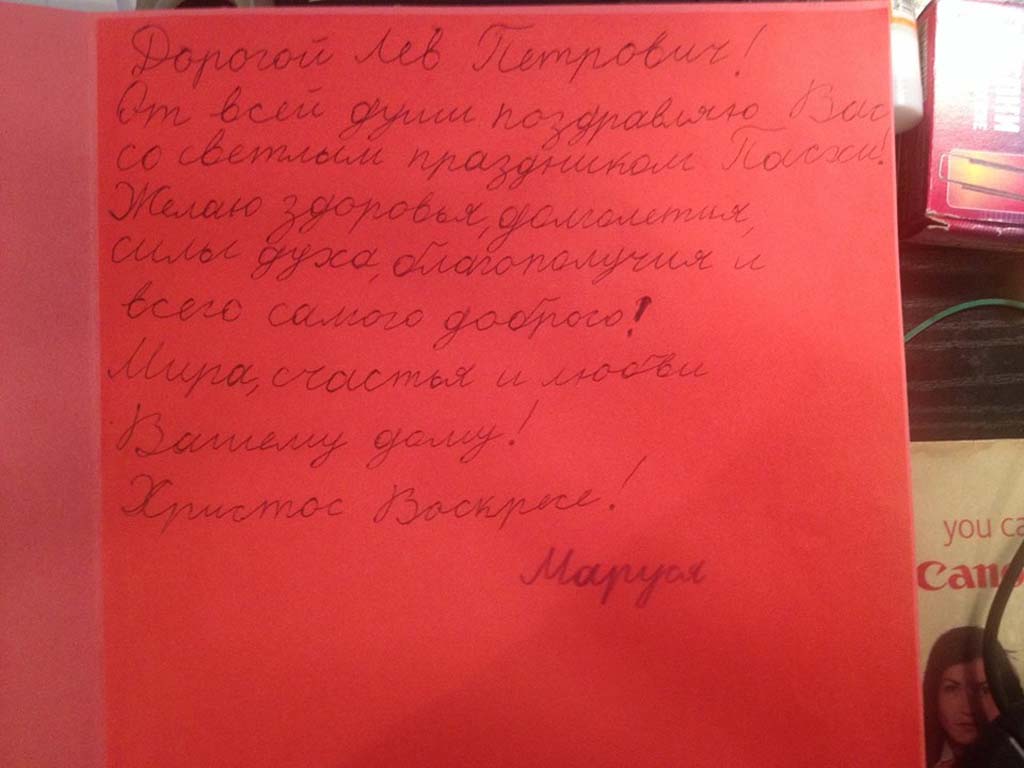 Дорогой Лев Петрович!
От всей души поздравляю Вас
со светлым праздником Пасхи!
Желаю здоровья, долголетия,
силы духа, благополучия и
всего самого доброго!
Мира, счастья и любви
Вашему дому!
Христос Воскресе!
Маруся
you